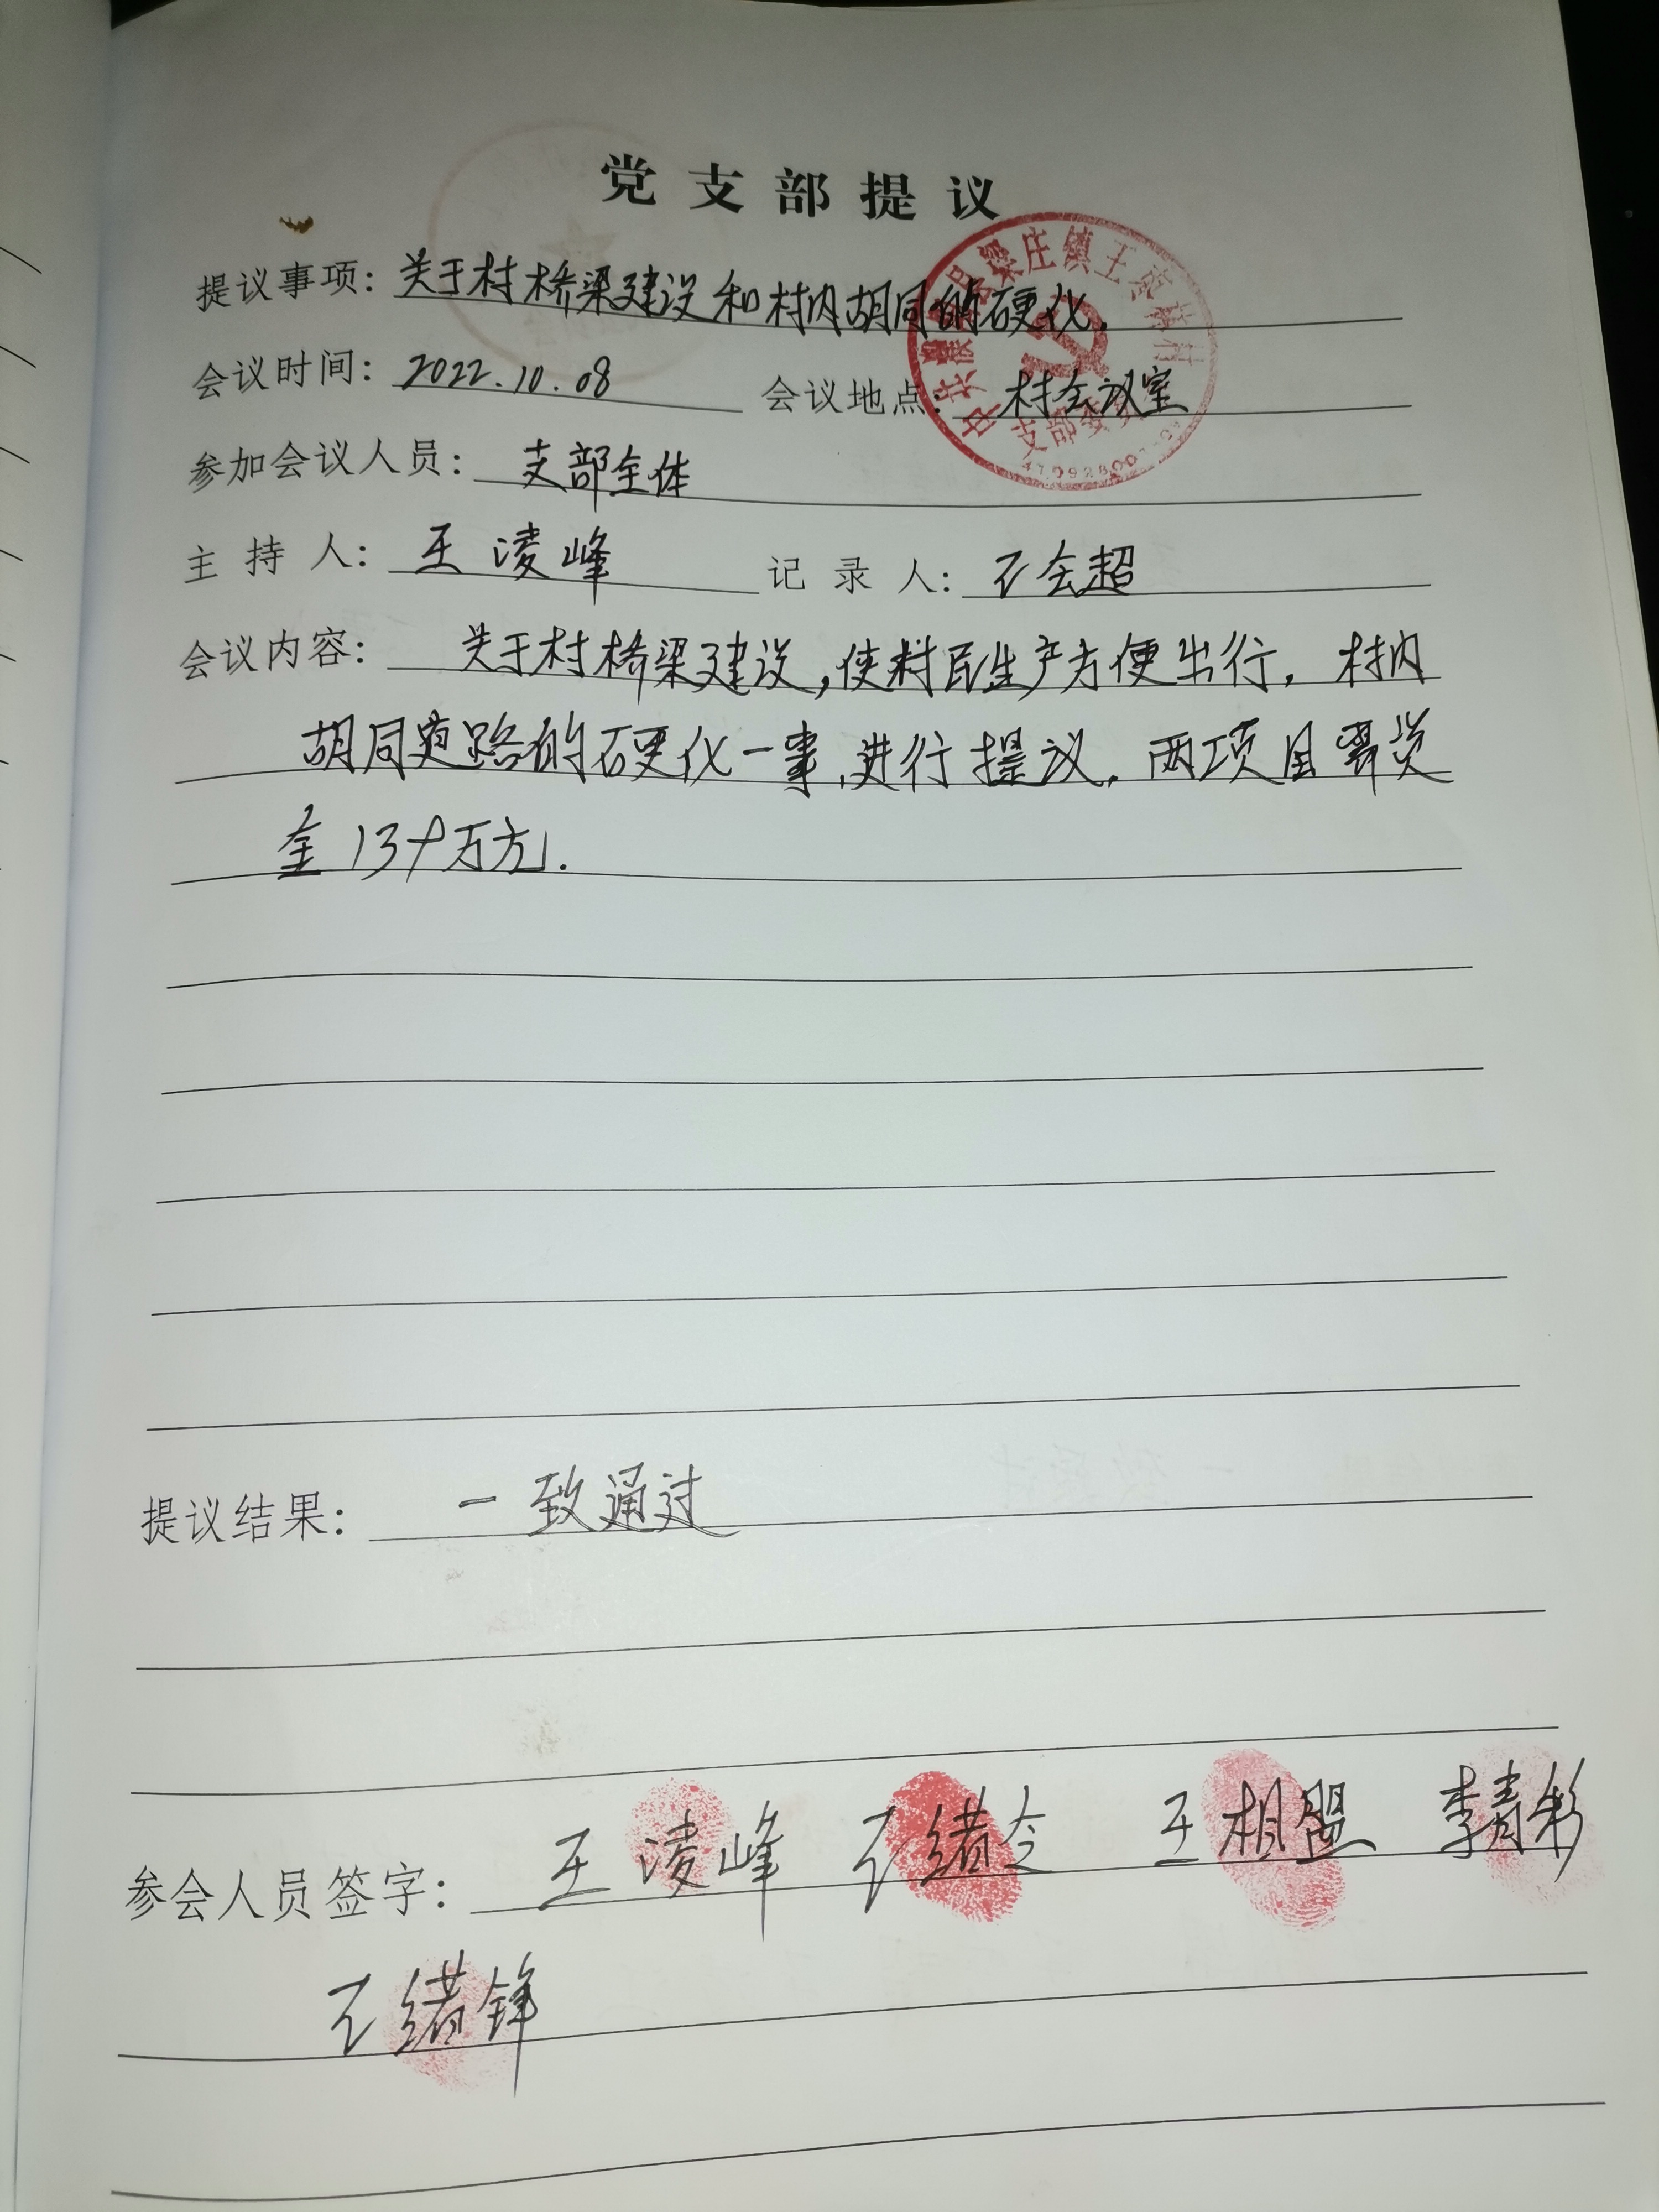 党支部提议
提议事项：关于村桥梁建设和村内胡同的硬化.
会议时间：2022.10.08 会议地点：村会议室
参加会议人员：支部全体
主持人：王凌峰 记录人：王会超
会议内容：关于村桥梁建设,使村民生产方便出行,村内
胡同道路的硬化一事,进行提议.两项目需资
金13个万元.
提议结果：一致通过
参会人员签字：王凌峰 王绪令 王相盟 李青彩
王绪锋
梁庄镇王 村
支部委